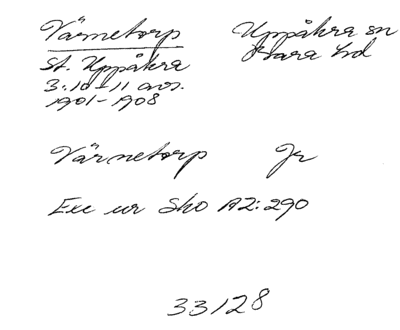 Värnetorp
Uppåkra sn
Bara hd
St. Uppåkra
3:10-11 avs.
1901-1908
Värnetorp Jr
Exc ur Sko A2:290
33128